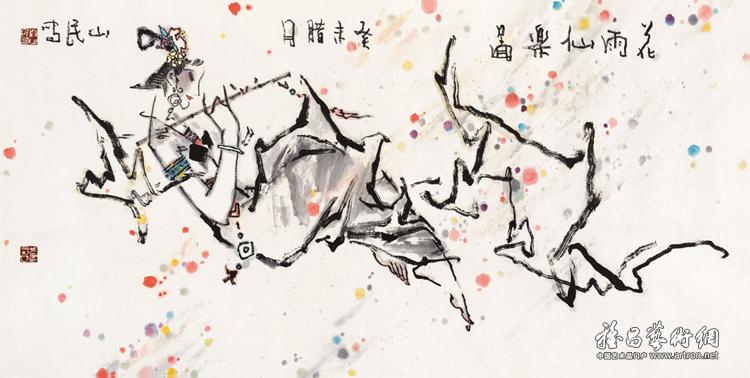 花雨仙樂圖
癸未腊月
山民写
雅昌藝術網
中国艺术品门户 www.artron.net